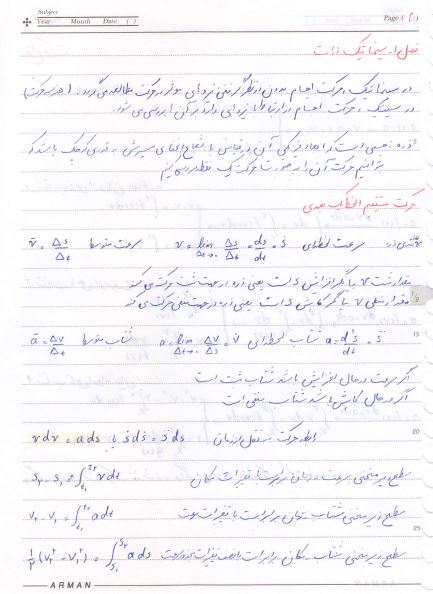 Subject
Year Month Date ( )
Page (
فصل ۱- سینماتیک ذرات
در سینماتیک، حرکت اجسام بدون در نظر گرفتن نیروهای موثر در حرکت مطالعه می‌گردد. (هندسه حرکت)
در سینتیک، حرکت اجسام در ارتباط با نیروهای وارد بر آن بررسی می‌شود.
ذره جسمی است که ابعاد فیزیکی آن در قیاس با شعاع انحنای مسیرش به قدری کوچک باشد که
بتوانیم حرکت آن را به صورت حرکت یک نقطه بررسی کنیم
حرکت مستقیم الخط یک بعدی
سرعت لحظه‌ای v = lim Δs/Δt = ds/dt = ṡ سرعت متوسط v̄ = Δs/Δt
Δt→0
مقدار مثبت v بیانگر افزایش s است یعنی ذره در جهت مثبت حرکت می‌کند
مقدار منفی v بیانگر کاهش s است یعنی ذره در جهت منفی حرکت می‌کند
15
شتاب متوسط ā = Δv/Δt شتاب لحظه‌ای a = lim Δv/Δs = v̇ a = d²s/dt = s̈
Δt→0
اگر سرعت در حال افزایش باشد شتاب مثبت است
اگر در حال کاهش باشد شتاب منفی است
20
رابطه حرکت مستقل از زمان v dv = a ds یا ṡ dṡ = s̈ ds
سطح زیر منحنی سرعت - زمان برابر است با تغییرات مکان s₂ - s₁ = ∫ₜ₁ᵗ² v dt
سطح زیر منحنی شتاب - زمان برابر است با تغییرات سرعت v₂ - v₁ = ∫ₜ₁ᵗ² a dt
25
سطح زیر منحنی شتاب - مکان برابر است با نصف تغییرات مجذور سرعت ½ (v₂² - v₁²) = ∫ₛ₁ˢ² a ds
ARMAN